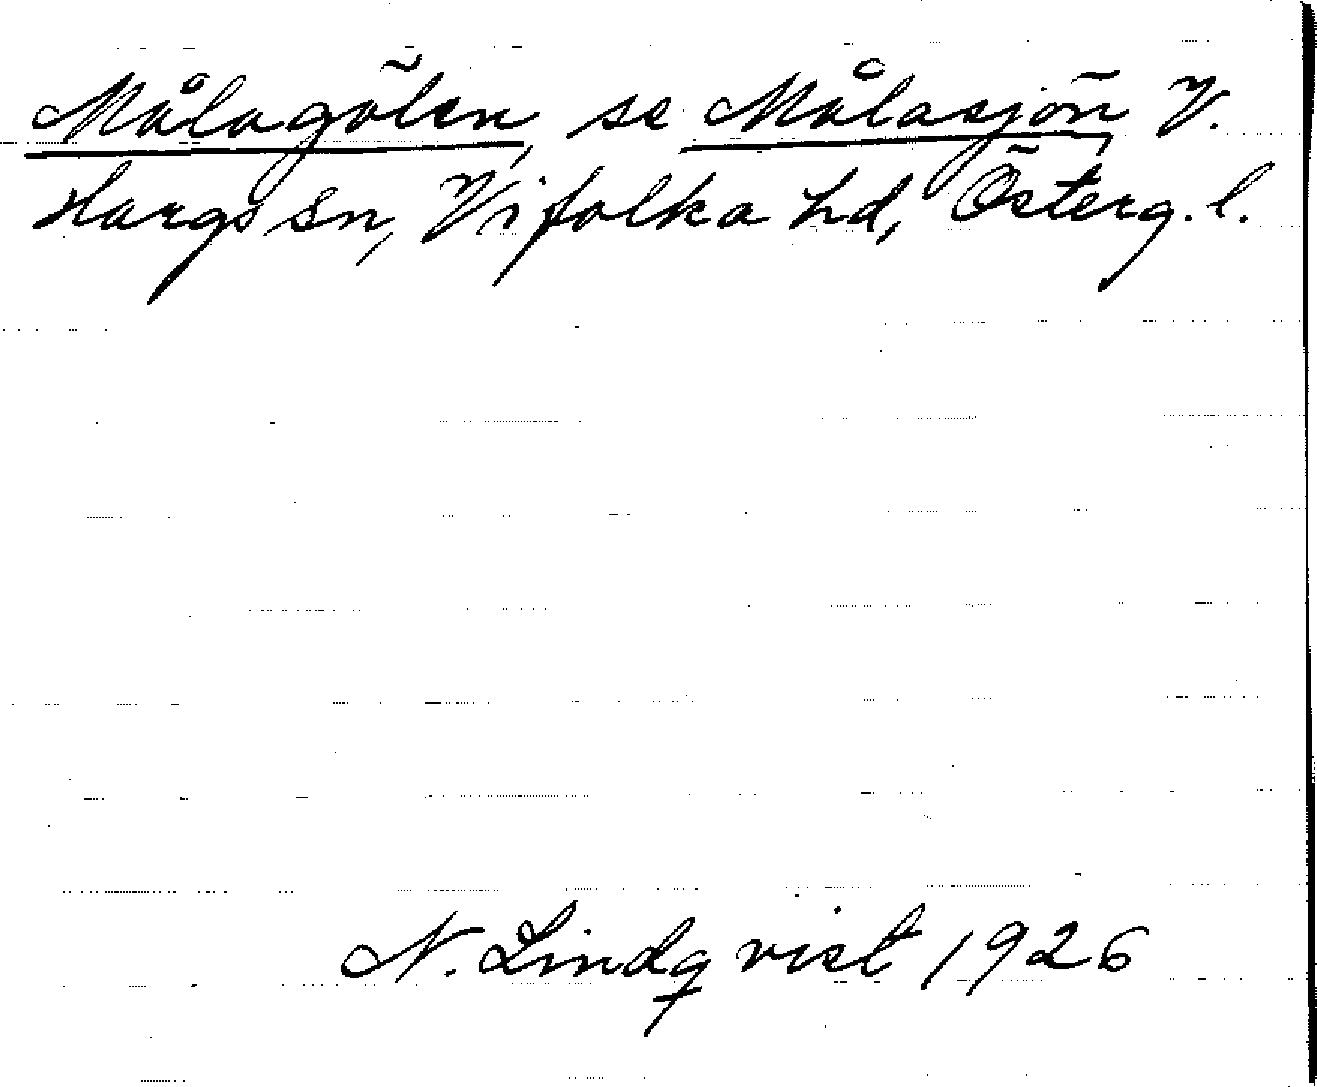 Målagölen, se Målasjön, V.
Hargs sn, Vifolka hd, Österg. l.
N. Lindqvist 1926